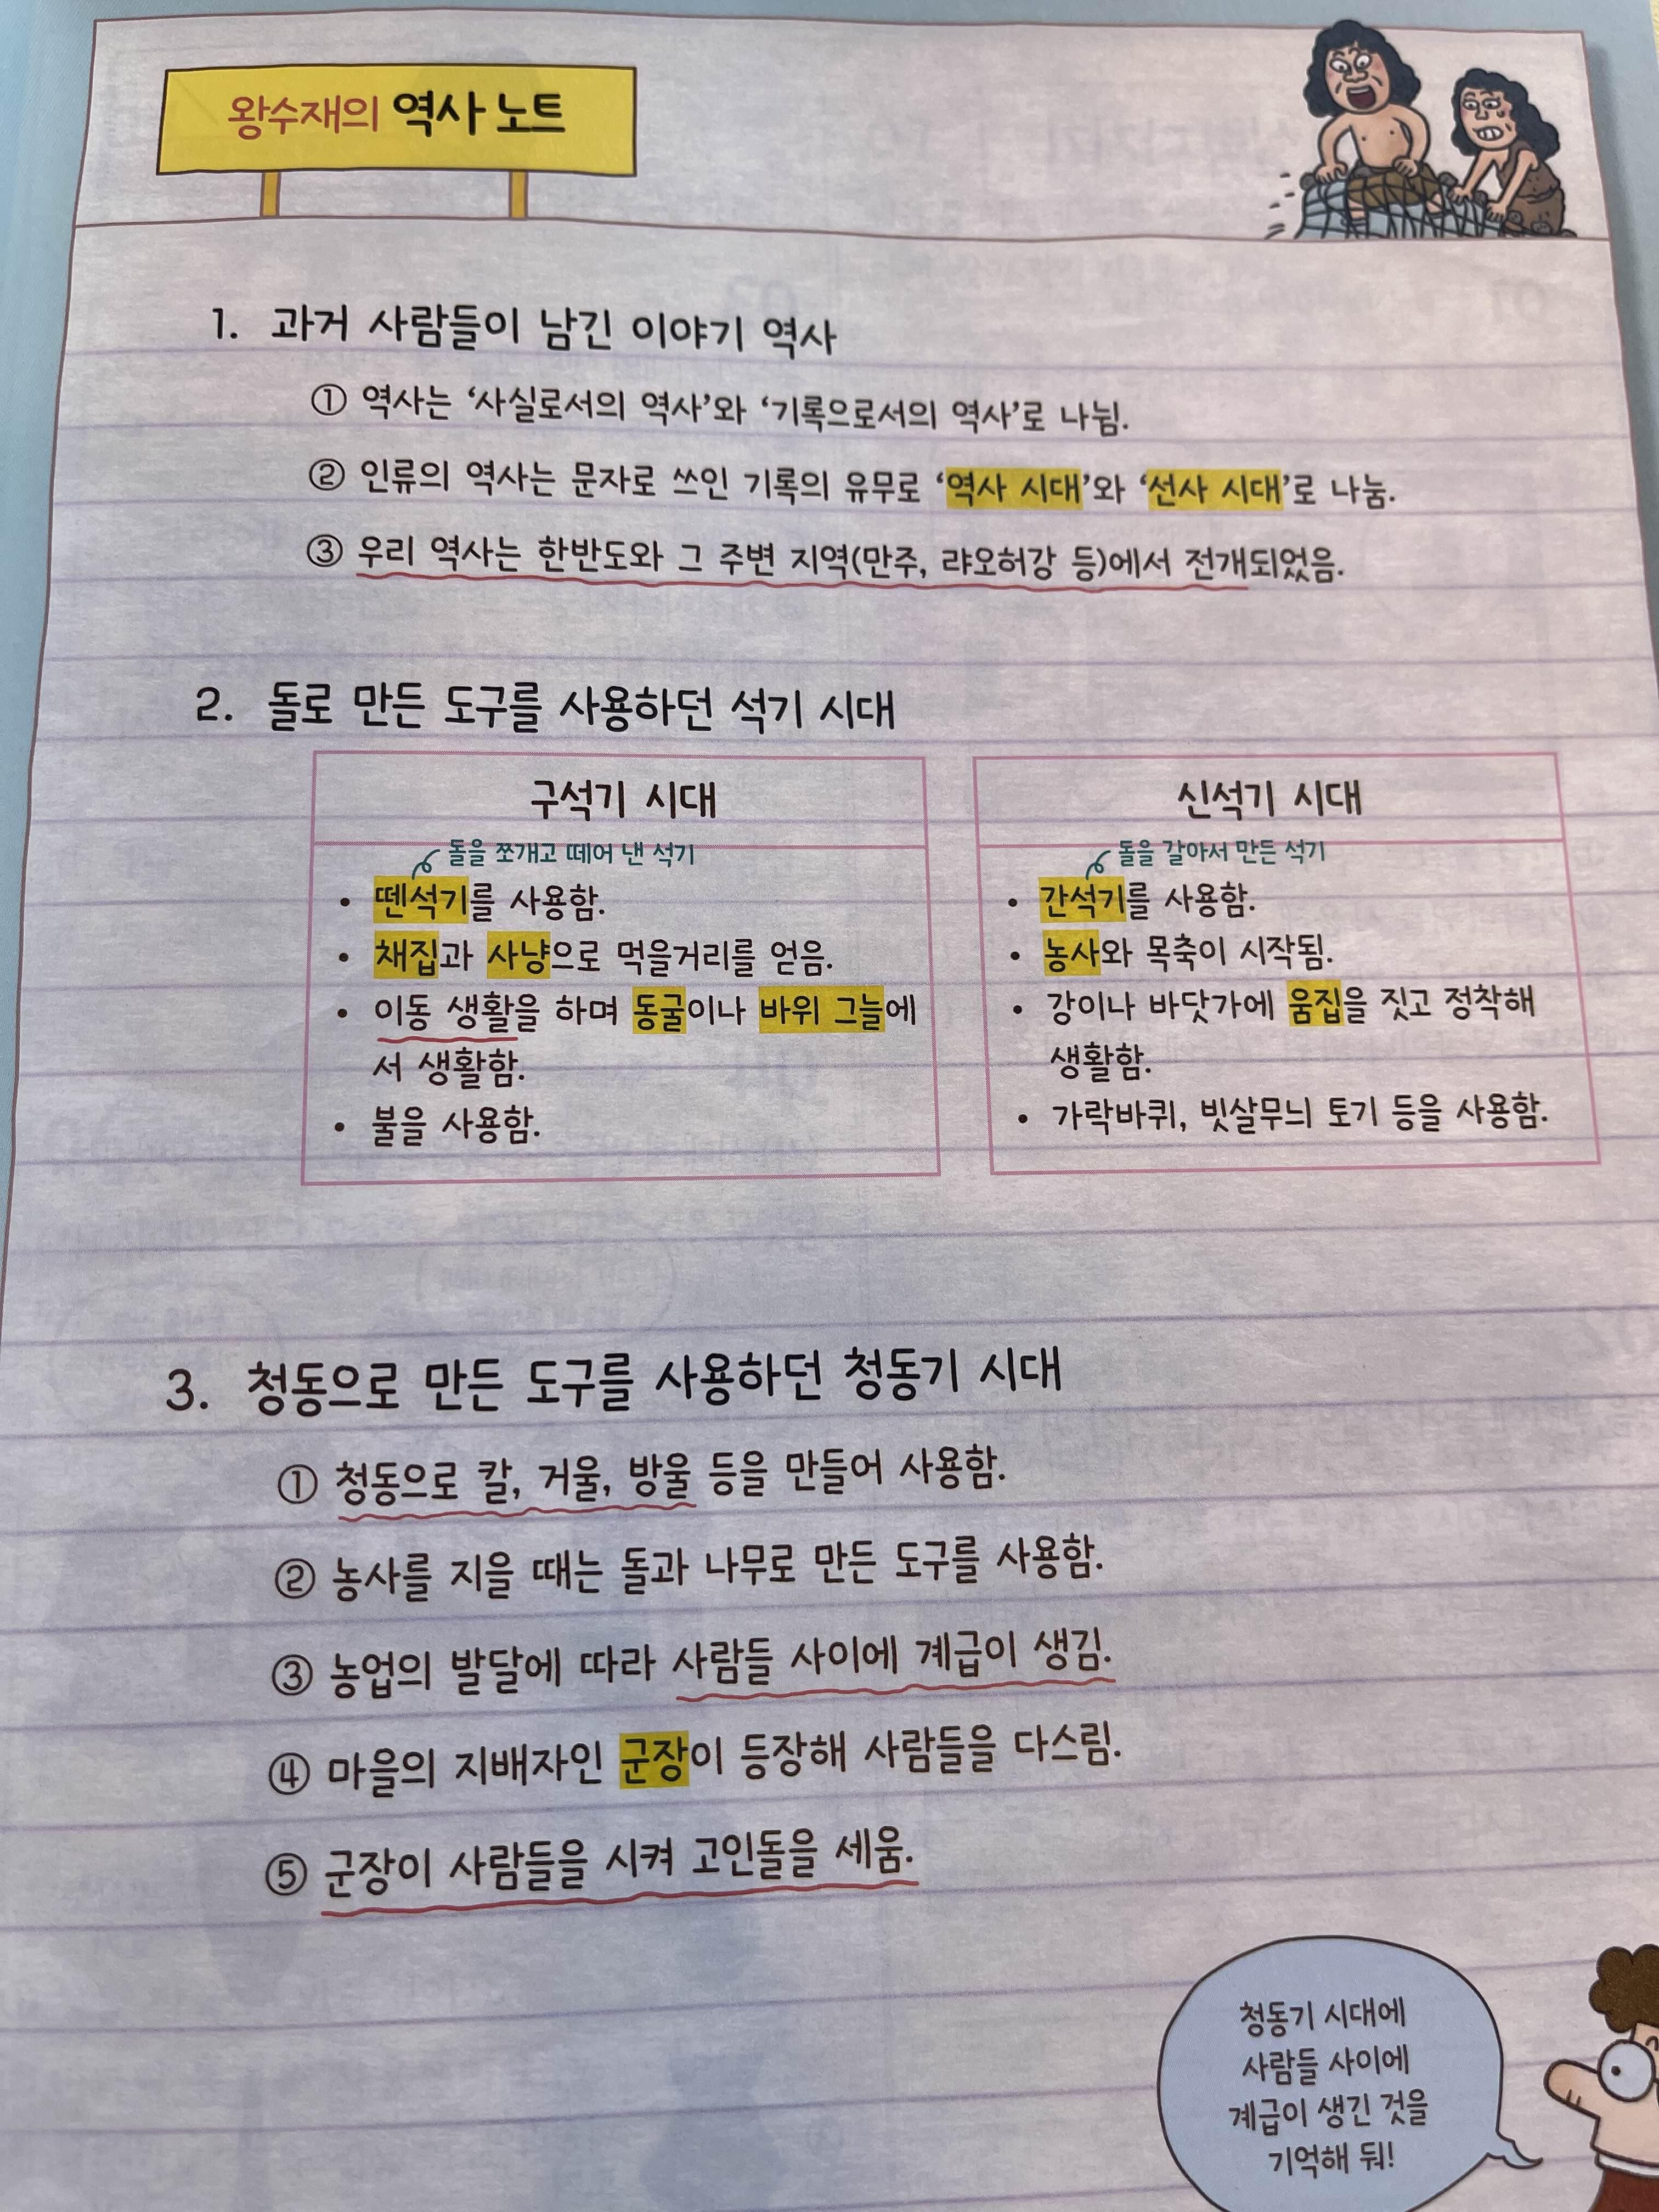 왕수재의 역사 노트
1. 과거 사람들이 남긴 이야기 역사
① 역사는 ‘사실로서의 역사’와 ‘기록으로서의 역사’로 나뉨.
② 인류의 역사는 문자로 쓰인 기록의 유무로 ‘역사 시대’와 ‘선사 시대’로 나눔.
③ 우리 역사는 한반도와 그 주변 지역(만주, 랴오허강 등)에서 전개되었음.
2. 돌로 만든 도구를 사용하던 석기 시대
구석기 시대
돌을 쪼개고 떼어 낸 석기
• 뗀석기를 사용함.
• 채집과 사냥으로 먹을거리를 얻음.
• 이동 생활을 하며 동굴이나 바위 그늘에
서 생활함.
• 불을 사용함.
신석기 시대
돌을 갈아서 만든 석기
• 간석기를 사용함.
• 농사와 목축이 시작됨.
• 강이나 바닷가에 움집을 짓고 정착해
생활함.
• 가락바퀴, 빗살무늬 토기 등을 사용함.
3. 청동으로 만든 도구를 사용하던 청동기 시대
① 청동으로 칼, 거울, 방울 등을 만들어 사용함.
② 농사를 지을 때는 돌과 나무로 만든 도구를 사용함.
③ 농업의 발달에 따라 사람들 사이에 계급이 생김.
④ 마을의 지배자인 군장이 등장해 사람들을 다스림.
⑤ 군장이 사람들을 시켜 고인돌을 세움.
청동기 시대에
사람들 사이에
계급이 생긴 것을
기억해 둬!